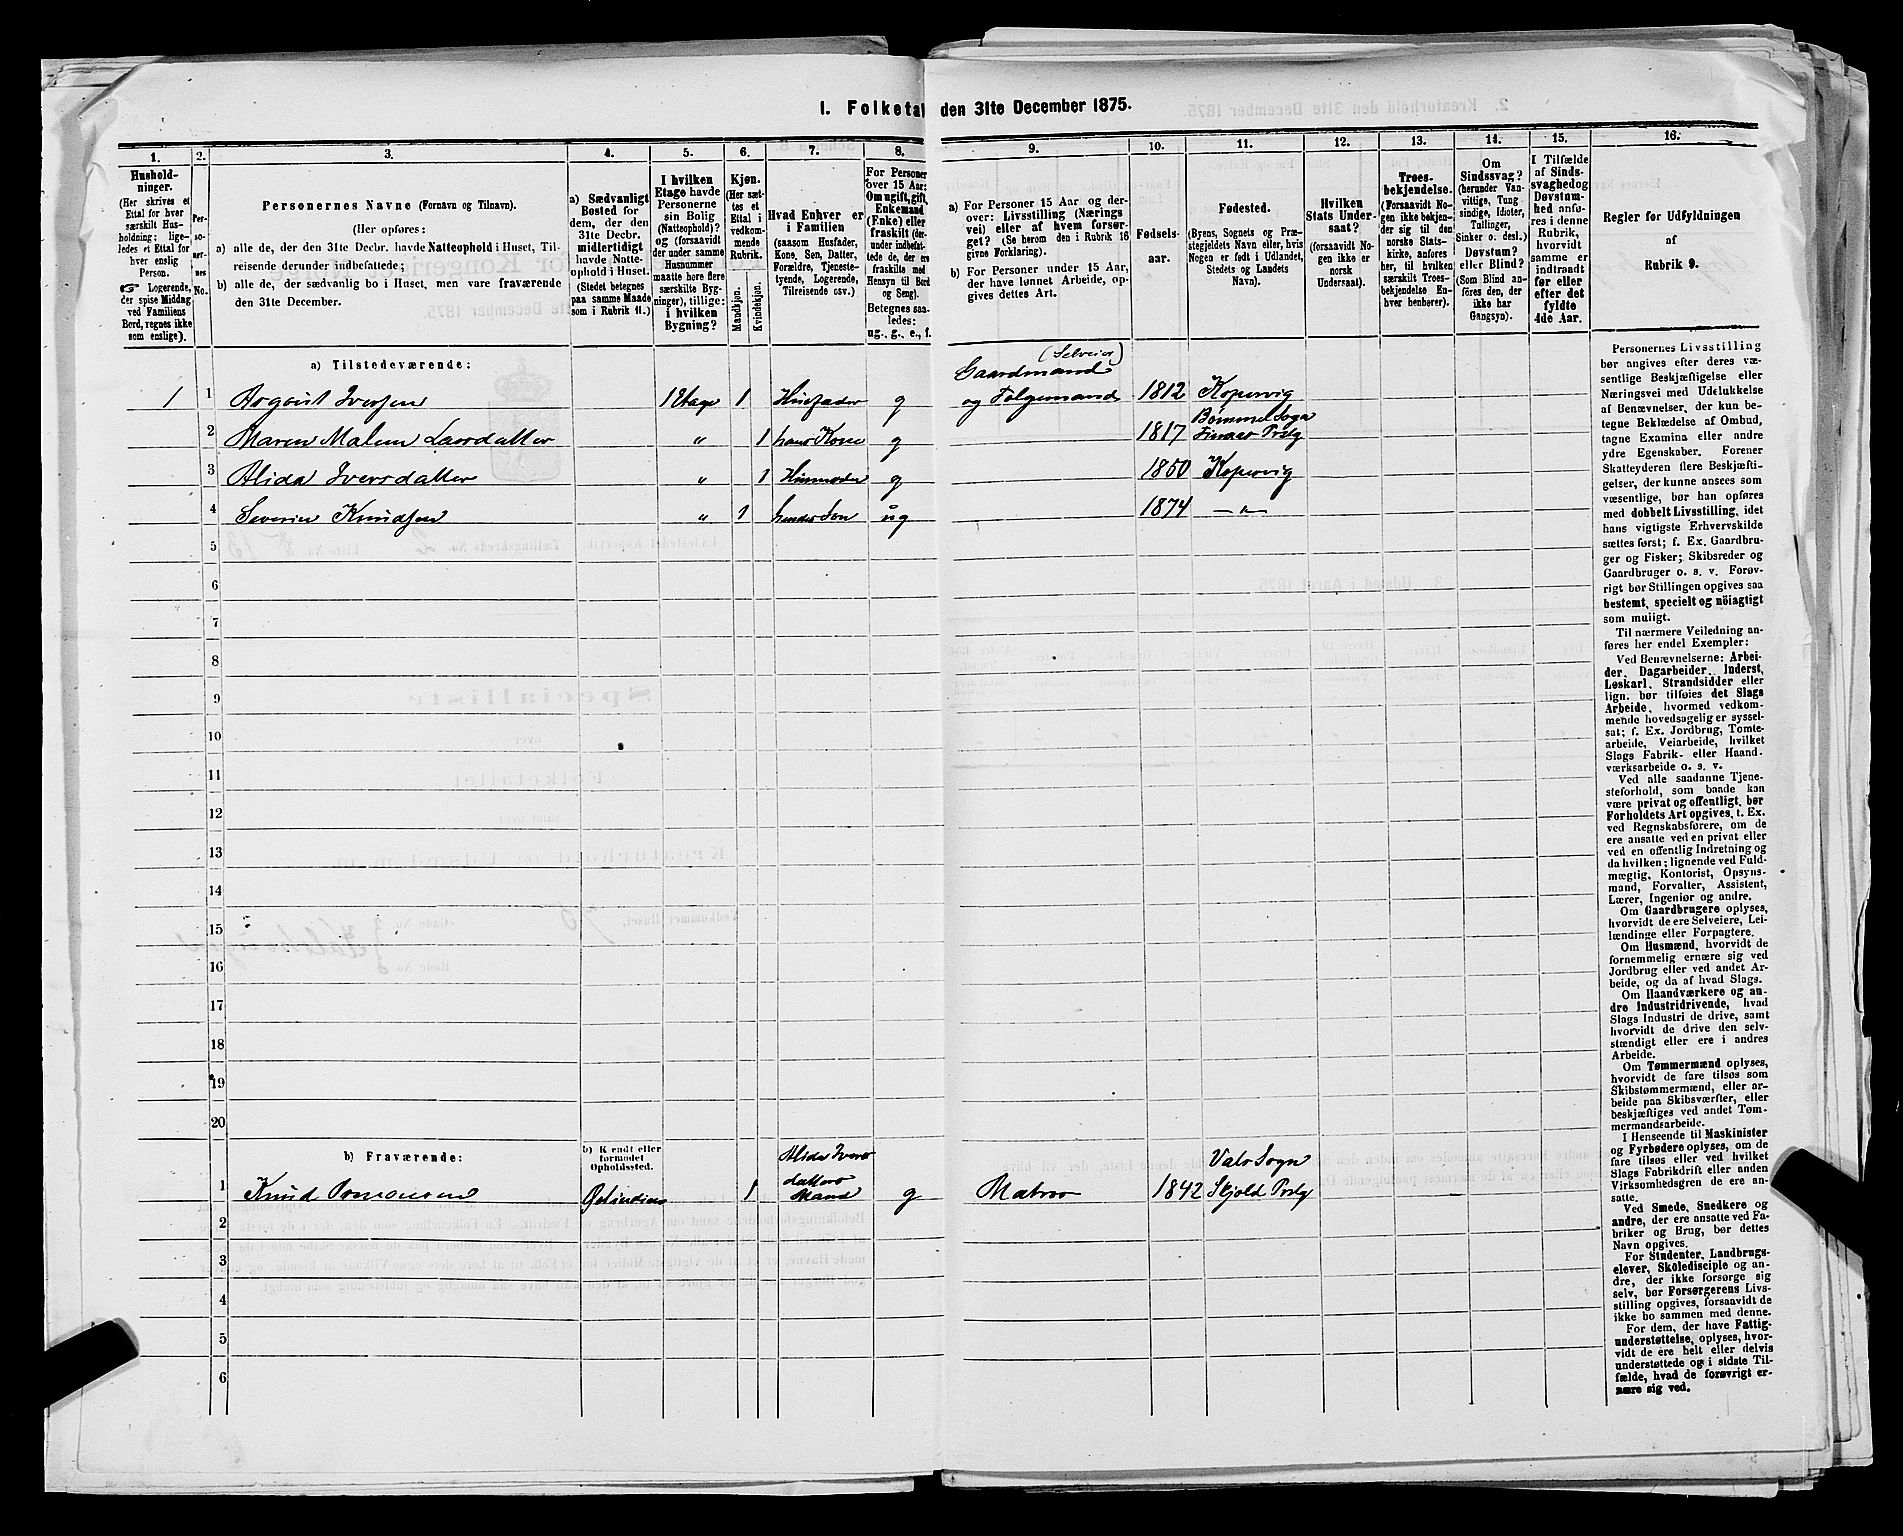 1. Folketal den 31te December 1875.
1. 2. 3. 4. 5. 6. 7. 8. 9. 10. 11. 12. 13. 14. 15. 16.
Hushold-
ninger.
(Her skrives et
Ettal for hver
særskilt Hus-
holdning; lige-
ledes et Ettal for
hver enslig
Person.
☞ Logerende,
der spise Middag
ved Familiens
Bord, regnes ikke
som enslige).
Per-
so-
ner-
nes
No.
Personernes Navne (Fornavn og Tilnavn).
(Her opføres:
a) alle de, der den 31te Decbr. havde Natteophold i Huset, Til-
reisende derunder indbefattede;
b) alle de, der sædvanlig bo i Huset, men vare fraværende
den 31te December.
a) Sædvanligt
Bosted for
dem, der den
31te Decbr.
midlertidigt
havde Natte-
ophold i Huset.
(Stedet betegnes
paa samme Maade
som i Rubrik 11.)
I hvilken
Etage havde
Personerne
sin Bolig
(Natteophold)?
og (forsaavidt
der under samme
Husnummer
maatte høre flere
særskilte Byg-
ninger), tillige:
i hvilken
Bygning?
Kjøn.
(Her sæt-
tes et
Ettal i
vedkom-
mende
Rubrik.
Mandkjøn.
Kvindekjøn.
Hvad Enhver er
i Familien
(saasom Husfader,
Kone, Søn, Datter,
Forældre, Tjeneste-
tyende, Logerende,
Tilreisende osv.)
For Personer
over 15 Aar:
Om ugift, gift,
Enkemand
(Enke) eller
fraskilt (der-
under indbefat-
tede de, der ere
fraskilte med
Hensyn til Bord
og Seng).
Betegnes saa-
ledes:
ug., g., e., f.
a) For Personer 15 Aar og der-
over: Livsstilling (Nærings
vei) eller af hvem forsør-
get? (Se herom den i Rubrik 16
givne Forklaring).
b) For Personer under 15 Aar,
der have lønnet Arbeide, op-
gives dettes Art.
Fødsels-
aar.
Fødested.
(Byens, Sognets og Præ-
stegjeldets Navn eller, hvis
Nogen er født i Udlandet,
Stedets og Landets
Navn).
Hvilken
Stats Under-
saat?
(forsaavidt No-
gen ikke er
norsk
Undersaat).
Troes-
bekjendelse.
(Forsaavidt No-
gen ikke bekjen-
der sig til den
norske Stats-
kirke, anføres
her, til hvilken
særskilt Troes-
bekjendelse En-
hver henhører).
Om
Sindssvag?
(herunder Van-
vittige, Tung
sindige, Idioter,
Tullinger,
Sinker o. desl.)
Døvstum?
eller Blind?
(Som Blind an-
føres den, der
ikke har
Gangsyn).
I Tilfælde
af Sinds-
svaghed og
Døvstum-
hed anfø-
res i denne
Rubrik,
hvorvidt
samme er
indtraadt
før eller
efter det
fyldte
4de Aar.
Regler for Udfyldningen
af
Rubrik 9.
a) Tilstedeværende:
Gaardmand (Selveier)
1 1 Aagaut Iversen 1 Etage 1 Husfader g og Følgemand 1812 Kopervig
2 Maren Malene Larsdatter " 1 hans Kone g 1817 Bømmel Sogn
Finaas Prstg
3 Alida Iversdatter " 1 Husmoder g 1850 Kopervig
4 Severin Knudsen " 1 hendes Søn ug 1874 —"—
5
6
7
8
9
10
11
12
13
14
15
16
17
18
19
20
b) Fraværende:
b) Kjendt eller
formodet
Opholdssted.
1 Knud Ostindien 1 Alida Ivers
datters
Mand g Matros 1842 Vats Sogn
Skjold Prstg
2
3
4
5
6
Personernes Livsstilling
bør angives efter deres væ-
sentlige Beskjæftigelse eller
Næringsvei med Udelukkelse
af Benævnelser, der kun be-
tegne Beklædelse af Ombud,
tagne Examina eller andre
ydre Egenskaber. Forener
Skatteyderen flere Beskjæfti-
gelser, der kunne ansees som
væsentlige, bør han opføres
med dobbelt Livsstilling, idet
hans vigtigste Erhvervskilde
sættes først; f. Ex. Gaardbru-
ger og Fisker; Skibsreder og
Gaardbruger o. s. v. Forøv-
rigt bør Stillingen opgives saa
bestemt, specielt og nöiagtigt
som muligt.
Til nærmere Veiledning an-
føres her endel Exempler:
Ved Benævnelserne: Arbei-
der, Dagarbeider, Inderst,
Løskarl, Strandsidder eller
lign. bør tilføies det Slags
Arbeide, hvormed vedkom-
mende hovedsagelig er syssel-
sat; f. Ex. Jordbrug, Tomte-
arbeide, Veiarbeide, hvilket
Slags Fabrik- eller Haand-
værksarbeide o. s. v.
Ved alle saadanne Tjene-
steforhold, som baade kan
være privat og offentligt, bør
Forholdets Art opgives, t. Ex.
ved Regnskabsførere, om de
ere ansatte ved en privat eller
ved en offentlig Indretning og
da hvilken; lignende ved Fuld-
mægtig, Kontorist, Opsyns-
mand, Forvalter, Assistent,
Lærer, Ingeniør og andre.
Om Gaardbrugere oplyses,
hvorvidt de ere Selveiere, Lei-
lændinge eller Forpagtere.
Om Husmænd, hvorvidt de
fornemmelig ernære sig ved
Jordbrug eller ved andet Ar-
beide, og da af hvad Slags.
Om Haandværkere og an-
dre Industridrivende, hvad
Slags Industri de drive, samt
hvorvidt de drive den selv-
stændigt eller ere i andres
Arbeide.
Om Tømmermænd oplyses,
hvorvidt de fare tilsøs som
Skibstømmermænd, eller ar-
beide paa Skibsværfter, eller
beskjæftiges ved andet Tøm-
mermandsarbeide.
I Henseende til Maskinister
og Fyrbødere oplyses, om de
fare tilsøs eller ved hvilket
Slags Fabrikdrift eller anden
Virksomhedsgren de ere an-
satte.
Ved Smede, Snedkere og
andre, der ere ansatte ved Fa-
briker og Brug, bør dettes
Navn opgives.
For Studenter, Landbrugs-
elever, Skoledisciple og an-
dre, der ikke forsørge sig
selv, bør Forsørgerens Livs-
stilling opgives, forsaavidt de
ikke bo sammen med denne.
For dem, der have Fattig-
understøttelse, oplyses, hvor-
vidt de ere helt eller delvis
understøttede og i sidste Til-
fælde, hvad de forøvrigt er-
nære sig ved.